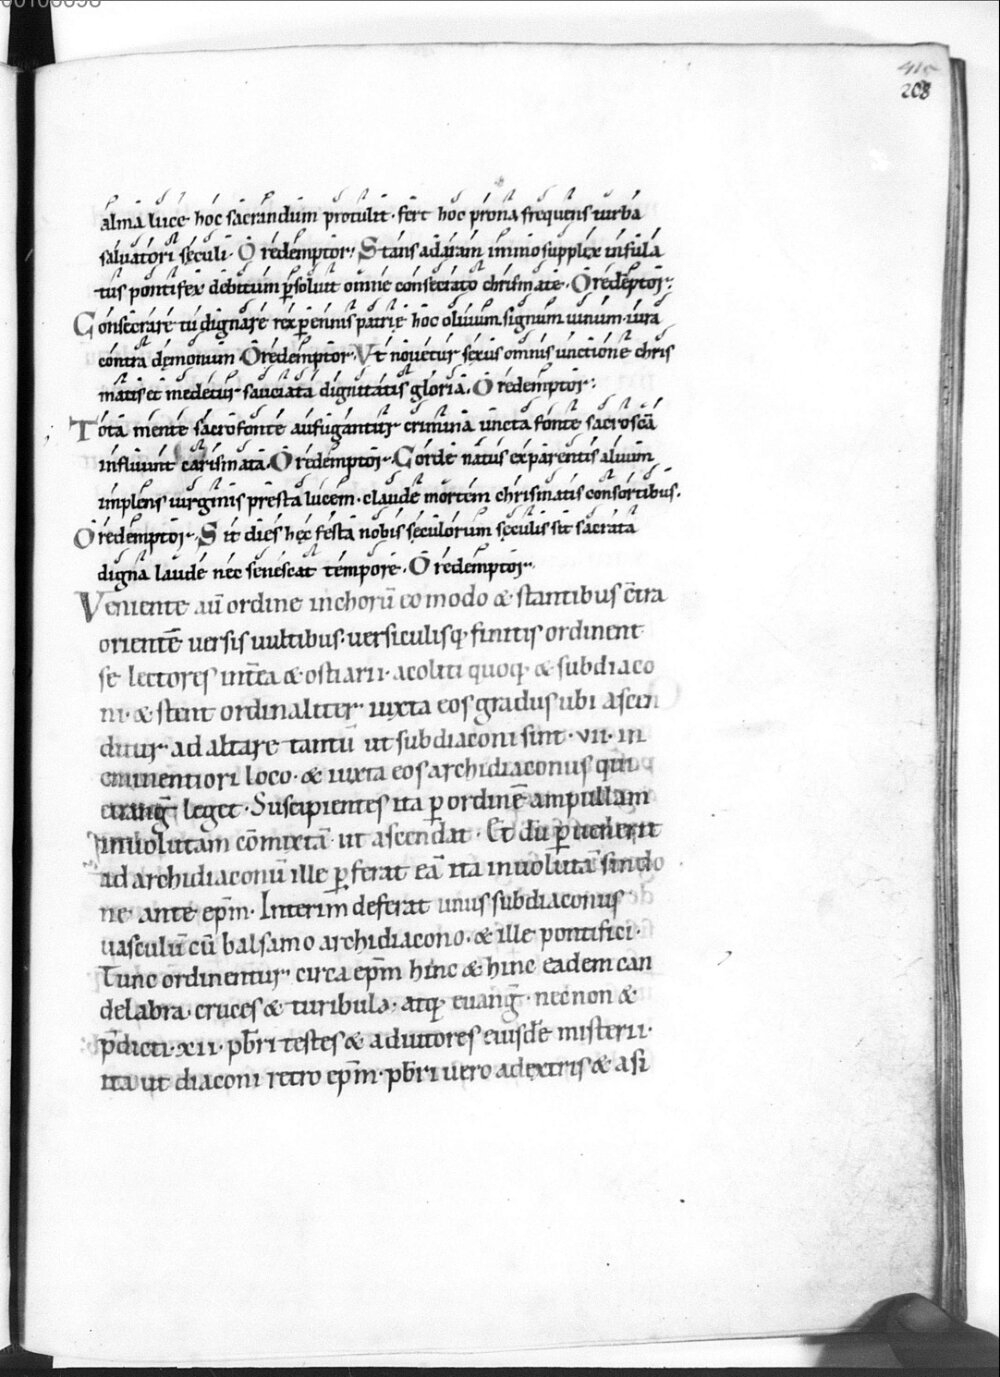 00100098
415
208
alma luce hoc sacrandum protulit· fert hoc prona frequens turba
saluatori sęculi· O redemptor: Stans ad aram immo supplex infula
tus pontifex debitum p̱soluit omne consecrato chrismate· O redēptor:
Consecrare tu dignare rex perennis patrię hoc oliuum signum uiuum iura
contra dęmonum O redemptor· Vt nouetur sexus omnis unctione chris
matis et medetur sauciata dignitatis gloria. O redemptor:
Tota mente sacro fonte aufugantur crimina uncta fonte sacroscā
influunt carismata. O redemptor· Corde natus ex parentis aluum
implens uirginis presta lucem· claude mortem chrismatis consortibus.
O redemptor· Sit dies hęc festa nobis sęculorum sęculis sit sacrata
digna laude nec senescat tempore· O redemptor·
Veniente aū ordine in chorū eo modo & stantibus c̄tra
orientē uersis uultibus· uersiculisq· finitis ordinent
se lectores int̄ea & ostiarii· acoliti quoq· & subdiaco
ni· & stent ordinaliter iuxta eos gradus ubi ascen
ditur ad altare tantū ut subdiaconi sint· vii· in
eminentiori loco· & iuxta eos archidiaconus qui
euanḡ leget· Suscipientes ita p̱ ordinē ampullam
inuolutam cōmixtā ut ascendat· Et dū p̱uenerit
ad archidiaconū ille p̱ferat eā ita inuolutā sindo
ne ante ep̄m· Interim deferat unus subdiaconus
uasculū cū balsamo archidiacono· & ille pontifici·
Tunc ordinentur circa ep̄m hinc & hinc eadem can
delabra· cruces & turibula· atq· euanḡ· necnon &
p̄dicti· xii· pb̄ri testes & adiutores eiusdē misterii·
ita ut diaconi retro ep̄m· pb̄ri uero a dextris & a si